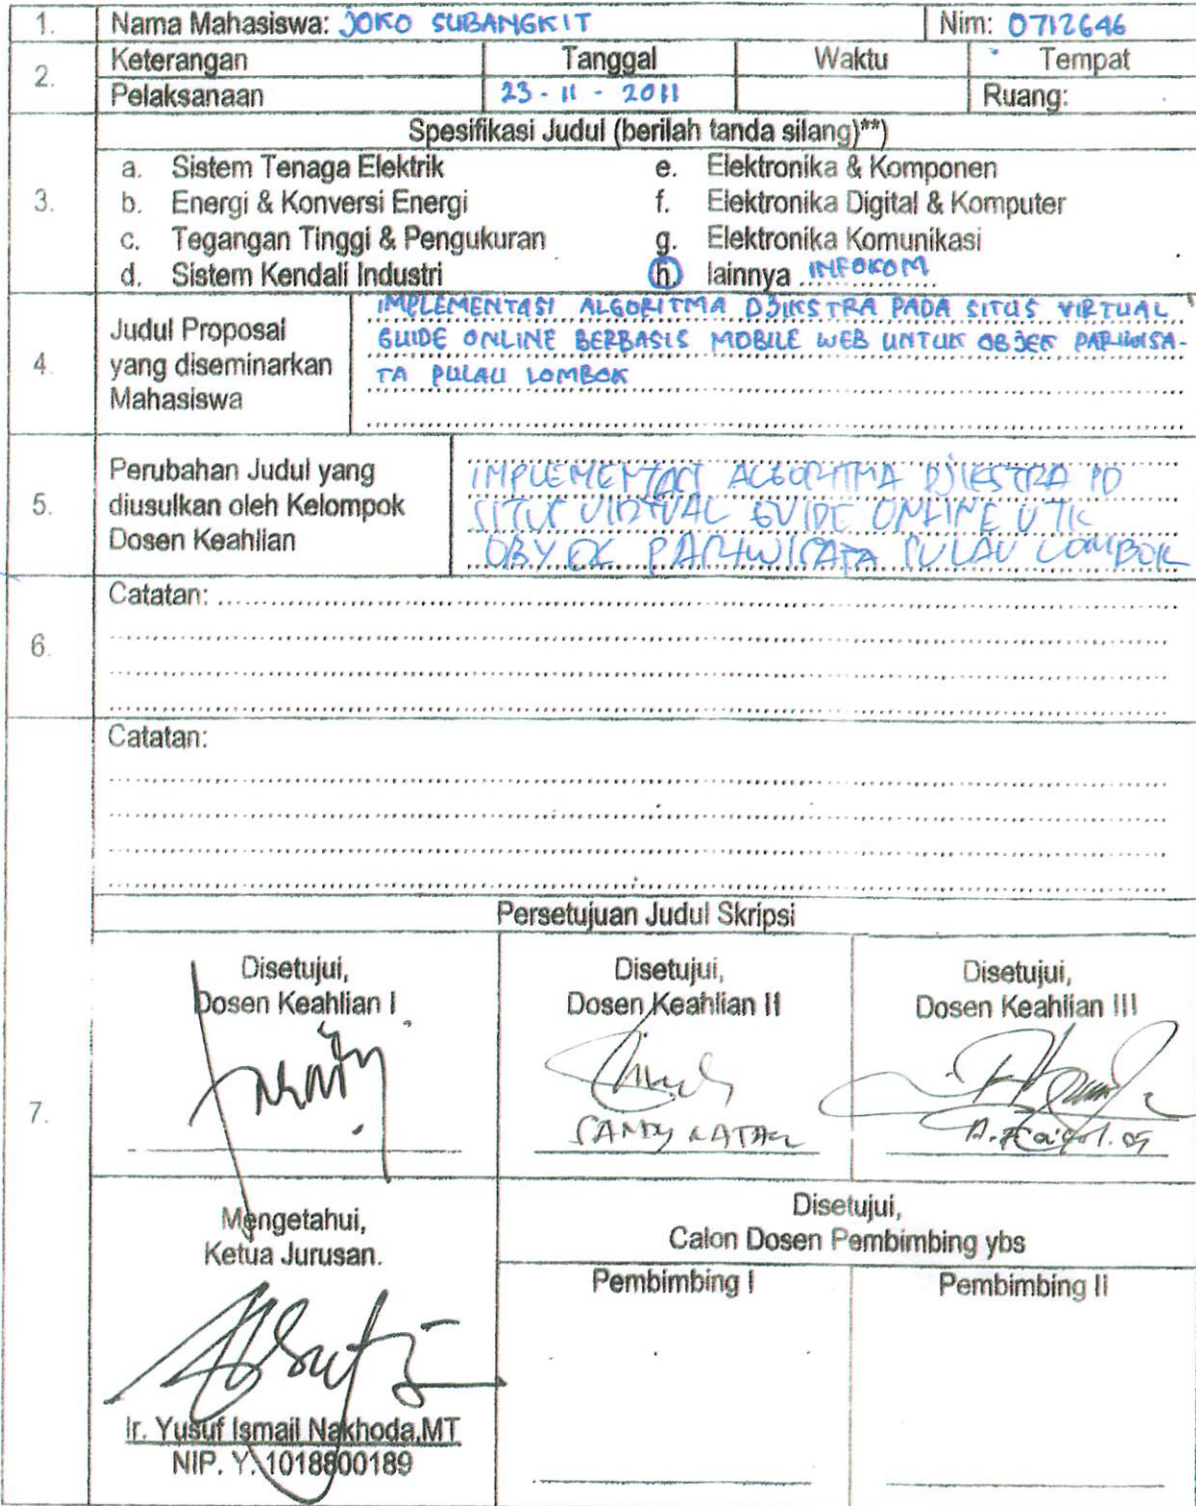 1. Nama Mahasiswa: JOKO SUBANGKIT Nim: 0712646
2. Keterangan Tanggal Waktu Tempat
Pelaksanaan 23 - 11 - 2011 Ruang:
3. Spesifikasi Judul (berilah tanda silang)**)
a. Sistem Tenaga Elektrik e. Elektronika & Komponen
b. Energi & Konversi Energi f. Elektronika Digital & Komputer
c. Tegangan Tinggi & Pengukuran g. Elektronika Komunikasi
d. Sistem Kendali Industri h. lainnya INFOKOM
4. Judul Proposal yang diseminarkan Mahasiswa
IMPLEMENTASI ALGORITMA DJIKSTRA PADA SITUS VIRTUAL
GUIDE ONLINE BERBASIS MOBILE WEB UNTUK OBJEK PARIWISA-
TA PULAU LOMBOK
5. Perubahan Judul yang
diusulkan oleh Kelompok
Dosen Keahlian
IMPLEMENTASI ALGORITMA DJIKSTRA PD
SITUS VIRTUAL GUIDE ONLINE UTK
OBYEK PARIWISATA PULAU LOMBOK
6. Catatan:
Catatan:
Persetujuan Judul Skripsi
7.
Disetujui,
Dosen Keahlian I
Disetujui,
Dosen Keahlian II
SANDY NATAEL
Disetujui,
Dosen Keahlian III
Mengetahui,
Ketua Jurusan.
Ir. Yusuf Ismail Nakhoda,MT
NIP. Y. 1018800189
Disetujui,
Calon Dosen Pembimbing ybs
Pembimbing I Pembimbing II